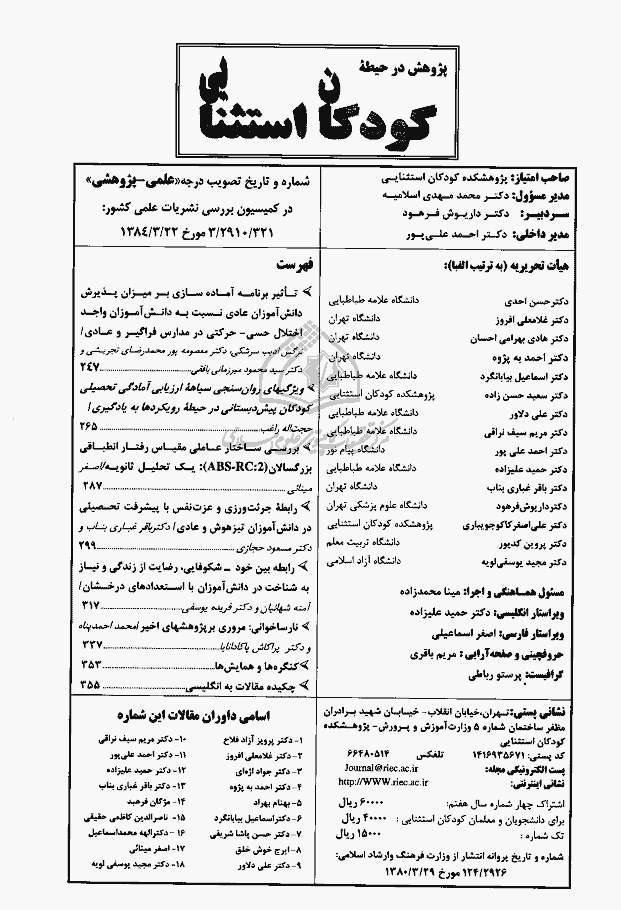 پژوهش در حیطهٔ
کودکان استثنایی
صاحب امتیاز: پژوهشکده کودکان استثنایی
مدیر مسؤول: دکتر محمد مهدی اسلامیه
سردبیر: دکتر داریوش فرهود
مدیر داخلی: دکتر احمد علی‌پور
شماره و تاریخ تصویب درجه «علمی-پژوهشی»
در کمیسیون بررسی نشریات علمی کشور:
۳/۲۹۱۰/۳۲۱ مورخ ۱۳۸۴/۳/۲۲
هیأت تحریریه (به ترتیب الفبا):
دکتر حسن احدی دانشگاه علامه طباطبایی
دکتر غلامعلی افروز دانشگاه تهران
دکتر هادی بهرامی احسان دانشگاه تهران
دکتر احمد به پژوه دانشگاه تهران
دکتر اسماعیل بیابانگرد دانشگاه علامه طباطبایی
دکتر سعید حسن زاده پژوهشکده کودکان استثنایی
دکتر علی دلاور دانشگاه علامه طباطبایی
دکتر مریم سیف نراقی دانشگاه علامه طباطبایی
دکتر احمد علی پور دانشگاه پیام نور
دکتر حمید علیزاده دانشگاه علامه طباطبایی
دکتر باقر غباری بناب دانشگاه تهران
دکتر داریوش فرهود دانشگاه علوم پزشکی تهران
دکتر علی‌اصغر کاکوجویباری پژوهشکده کودکان استثنایی
دکتر پروین کدیور دانشگاه تربیت معلم
دکتر مجید یوسفی‌لویه دانشگاه آزاد اسلامی
مسئول هماهنگی و اجرا: مینا محمدزاده
ویراستار انگلیسی: دکتر حمید علیزاده
ویراستار فارسی: اصغر اسماعیلی
حروفچینی و صفحه‌آرایی: مریم باقری
گرافیست: پرستو رباطی
فهرست
تأثیر برنامه آماده سازی بر میزان پذیرش
دانش‌آموزان عادی نسبت به دانش‌آموزان واجد
اختلال حسی- حرکتی در مدارس فراگیر و عادی/
نرگس ادیب سرشکی، دکتر معصومه پور محمدرضای تجریشی و
دکتر سید محمود میرزمانی بافقی ۲۴۷
ویژگیهای روان‌سنجی سیاههٔ ارزیابی آمادگی تحصیلی
کودکان پیش‌دبستانی در حیطهٔ رویکردها به یادگیری/
حجت‌اله راغب ۲۶۵
بررسی ساختار عاملی مقیاس رفتار انطباقی
بزرگسالان (ABS-RC:2): یک تحلیل ثانویه/اصغر
مینائی ۲۸۷
رابطهٔ جرئت‌ورزی و عزت‌نفس با پیشرفت تحصیلی
در دانش‌آموزان تیزهوش و عادی/ دکتر باقر غباری بناب و
دکتر مسعود حجازی ۲۹۹
رابطه بین خود - شکوفایی، رضایت از زندگی و نیاز
به شناخت در دانش‌آموزان با استعدادهای درخشان/
آمنه شهائیان و دکتر فریده یوسفی ۳۱۷
نارساخوانی: مروری بر پژوهشهای اخیر/محمد احمدپناه
و دکتر پراکاش پاکادانایا ۳۳۷
کنگره‌ها و همایش‌ها ۳۵۳
چکیده مقالات به انگلیسی ۳۵۵
نشانی پستی: تهران، خیابان انقلاب- خیابان شهید برادران
مظفر ساختمان شماره ۵ وزارت آموزش و پرورش- پژوهشکده
کودکان استثنایی
کد پستی: ۱۴۱۶۹۳۵۶۷۱ تلفکس ۶۶۴۸۰۵۱۴
پست الکترونیکی مجله: Journal@riec.ac.ir
نشانی اینترنتی: http://WWW.riec.ac.ir
اشتراک چهار شماره سال هفتم: ۶۰۰۰۰ ریال
برای دانشجویان و معلمان کودکان استثنایی: ۴۰۰۰۰ ریال
تک شماره: ۱۵۰۰۰ ریال
شماره و تاریخ پروانه انتشار از وزارت فرهنگ وارشاد اسلامی:
۱۲۴/۲۹۲۶ مورخ ۱۳۸۰/۳/۲۹
اسامی داوران مقالات این شماره
۱- دکتر پرویز آزاد فلاح
۲- دکتر غلامعلی افروز
۳- دکتر جواد اژه‌ای
۴- دکتر احمد به پژوه
۵- بهنام بهراد
۶- دکتر اسماعیل بیابانگرد
۷- دکتر حسن پاشا شریفی
۸- ایرج خوش خلق
۹- دکتر علی دلاور
۱۰- دکتر مریم سیف نراقی
۱۱- دکتر احمد علی‌پور
۱۲- دکتر حمید علیزاده
۱۳- دکتر باقر غباری بناب
۱۴- مژگان فرهبد
۱۵- ناصرالدین کاظمی حقیقی
۱۶- دکترالهه محمداسماعیل
۱۷- اصغر مینائی
۱۸- دکتر مجید یوسفی لویه